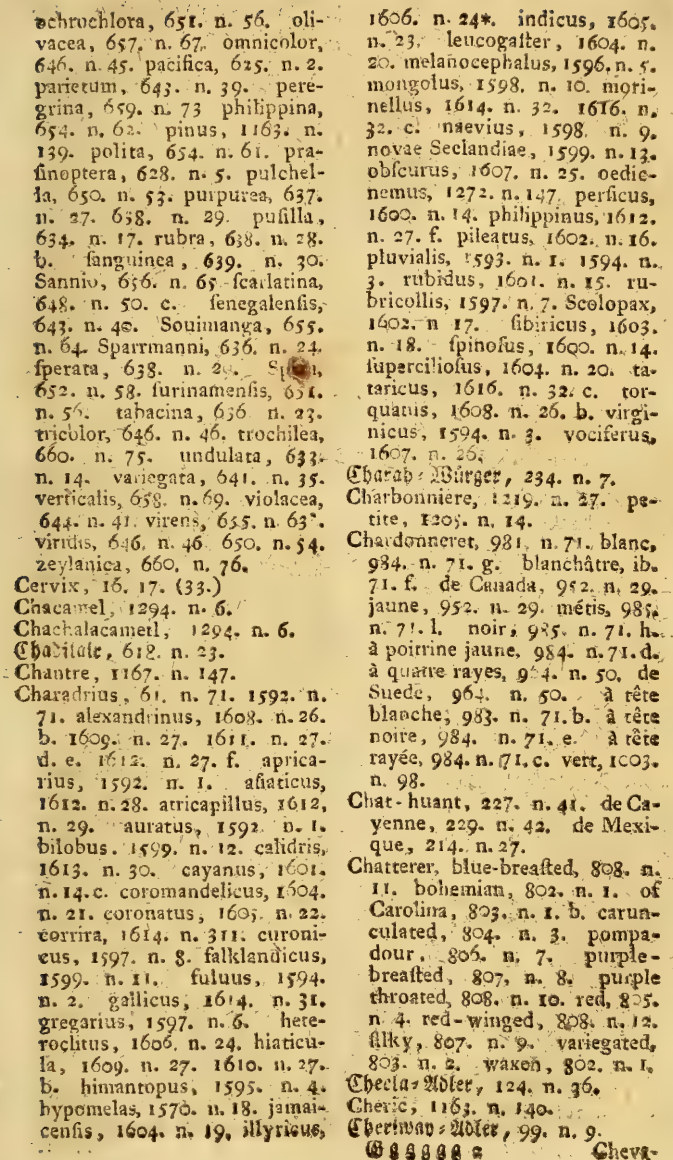 ochrochlora, 651. n. 56. oli-
vacea, 657. n. 67. omnicolor,
646. n. 45. pacifica, 625. n. 2.
parietum, 643. n. 39. pere-
grina, 659. n. 73 philippina,
654. n. 62. pinus, 1163. n.
139. polita, 654. n. 61. pra-
ſinoptera, 628. n. 5. pulchel-
la, 650. n. 53. purpurea, 637.
n. 27. 638. n. 29. puſilla,
634. n. 17. rubra, 638. n. 28.
b. ſanguinea, 639. n. 30.
Sannio, 656. n. 65 ſcarlatina,
648. n. 50. c. ſenegalenſis,
643. n. 40. Souimanga, 655.
n. 64. Sparrmanni, 636. n. 24.
ſperata, 638. n.
652. n. 58. ſurinamenſis, 651.
n. 56. tabacina, 636 n. 23.
tricolor, 646. n. 46. trochilea,
660. n. 75. undulata, 633.
n. 14. variegata, 641. n. 35.
verticalis, 658. n. 69. violacea,
644. n. 41. virens, 655. n. 63*.
viridis, 646. n. 46 650. n. 54.
zeylanica, 660. n. 76.
Cervix, 16. 17. (33.)
Chacamel, 1294. n. 6.
Chachalacametl, 1294. n. 6.
618. n. 23.
Chantre, 1167. n. 147.
Charadrius, 61. n. 71. 1592. n.
71. alexandrinus, 1608. n. 26.
b. 1609. n. 27. 1611. n. 27.
d. e. 1612. n. 27. f. aprica-
rius, 1592. n. 1. aſiaticus,
1612. n. 28. atricapillus, 1612,
n. 29. auratus, 1592. n. 1.
bilobus. 1599. n. 12. calidris,
1613. n. 30. cayanus, 1601.
n. 14. c. coromandelicus, 1604.
n. 21. coronatus, 1605. n. 22.
corrira, 1614. n. 311. curoni-
cus, 1597. n. 8. falklandicus,
1599. n. 11. fuluus, 1594.
n. 2. gallicus, 1614. n. 31.
gregarius, 1597. n. 6. hete-
roclitus, 1606. n. 24. hiaticu-
la, 1609. n. 27. 1610. n. 27.
b. himantopus, 1595. n. 4.
hypomelas, 1570. n. 18. jamai-
cenſis, 1604. n. 19. illyricus,
1606. n. 24*. indicus, 1605.
n. 23. leucogaſter, 1604. n.
20. melanocephalus, 1596. n. 5.
mongolus, 1598. n. 10. mori-
nellus, 1614. n. 32. 1616. n.
32. c. naevius, 1598. n. 9.
novae Seelandiae, 1599. n. 13.
obſcurus, 1607. n. 25. oedic-
nemus, 1272. n. 147. perſicus,
1600. n. 14. philippinus, 1612.
n. 27. f. pileatus, 1602. n. 16.
pluvialis, 1593. n. 1. 1594. n.
3. rubidus, 1601. n. 15. ru-
bricollis, 1597. n. 7. Scolopax,
1602. n 17. ſibiricus, 1603.
n. 18. ſpinoſus, 1600. n. 14.
ſuperciliosus, 1604. n. 20. ta-
taricus, 1616. n. 32. c. tor-
quatus, 1608. n. 26. b. virgi-
nicus, 1594. n. 3. vociferus,
1607. n. 26.
Charah-Würger, 234. n. 7.
Charbonniere, 1219. n. 27. pe-
tite, 1205. n. 14.
Chardonneret, 981. n. 71. blanc,
984. n. 71. g. blanchâtre, ib.
71. f. de Canada, 952. n. 29.
jaune, 952. n. 29. métis, 985.
n. 71. l. noir, 985. n. 71. h.
à poitrine jaune, 984. n. 71. d.
à quatre rayes, 964. n. 50. de
Suede, 964. n. 50. à tête
blanche, 983. n. 71. b. à tête
noire, 984. n. 71. e. à tête
rayée, 984. n. 71. c. vert, 1003.
n. 98.
Chat-huant, 227. n. 41. de Ca-
yenne, 229. n. 42. de Mexi-
que, 214. n. 27.
Chatterer, blue-breaſted, 808. n.
11. bohemian, 802. n. 1. of
Carolina, 803. n. 1. b. carun-
culated, 804. n. 3. pompa-
dour, 806. n. 7. purple-
breaſted, 807. n. 8. purple
throated, 808. n. 10. red, 805.
n. 4. red-winged, 808. n. 12.
ſilky, 807. n. 9. variegated,
803. n. 2. waxen, 802. n. 1.
Checla-Adler, 124. n. 36.
Cheric, 1163. n. 140.
Cheriway-Adler, 99. n. 9.
Cheva-